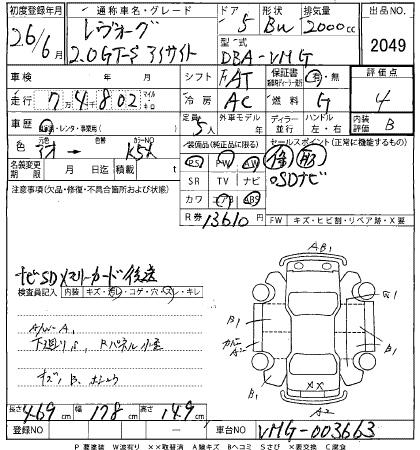 初度登録年月 通称車名・グレード ドア 形状 排気量 出品NO.
26/6月 レヴォーグ 2.0GT-S アイサイト 5 2000cc 2049
型式 DBA-VMG
車検 年 月 シフト FAT 保証書 有・無 評価点
走行 7万4802 マイル キロ 冷房 AC 燃料 G 4
車歴 自家用・レンタ・事業用( ) 定員 5人 外車モデル 年 ディーラー 並行 ハンドル 左・右 内装評価 B
色 元色 色替 カラーNO. K5X 装備品(純正品に限る) セールスポイント(正常に機能するもの)
名義変更期限 月 日迄 積載 t PS PW AW
注意事項(欠品・修復・不具合箇所および状態) SR TV ナビ SDナビ
カワ エアB ABS
R券 13610 FW キズ・ヒビ割・リペア跡・X要
ナビSDメモリーカード後送
検査員記入 内装 キズ・汚レ・コゲ・穴・スレ・キレ
A/W-A,
キズ, B,
AB1
B1
B1
B1
A2
XX
長さ 469cm 幅 178cm 高さ 149cm
登録NO 車台NO VMG-003663
P要塗装 W波有り XX取替済 A線キズ Bヘコミ Sさび X要交換 C腐食